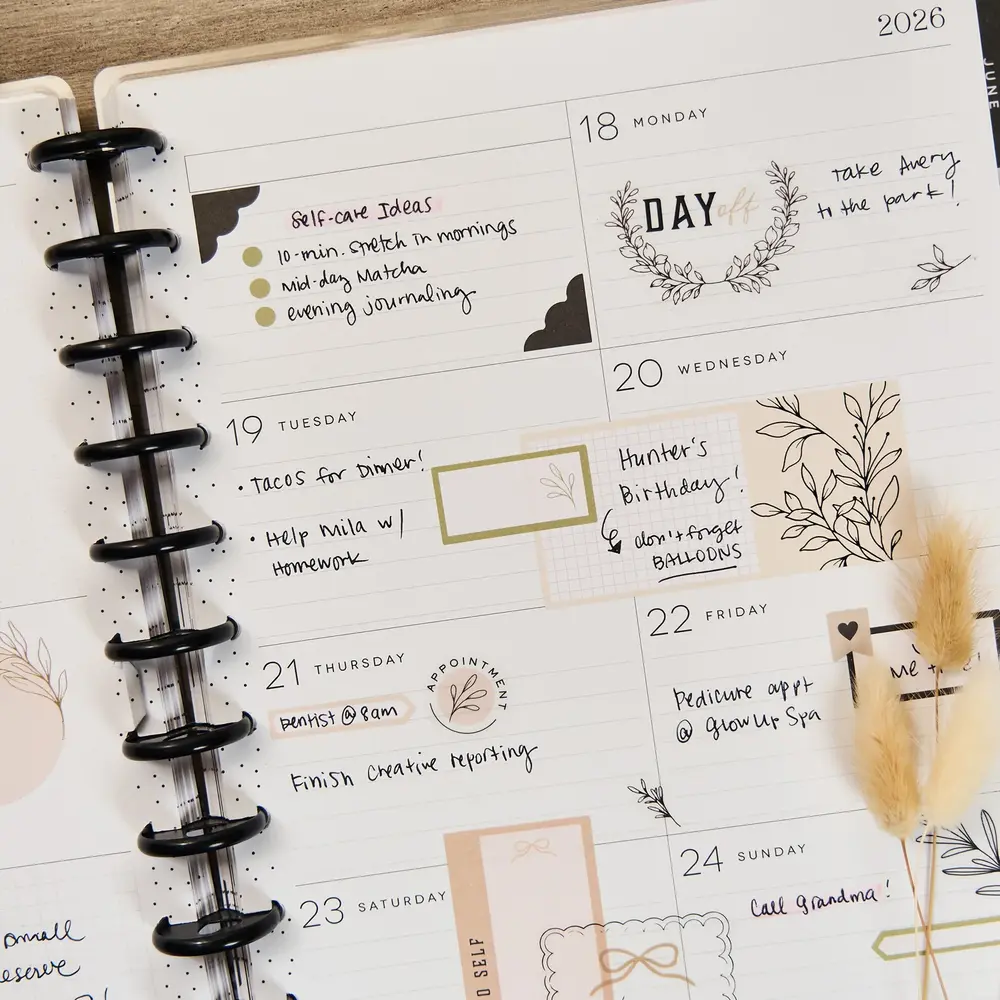 2026
JUNE
Self-care Ideas
10-min. stretch in mornings
Mid-day Matcha
evening journaling
18 MONDAY
DAY off
Take Avery
to the park!
19 TUESDAY
• Tacos for Dinner!
• Help Mila w/
Homework
20 WEDNESDAY
Hunter's
Birthday!
don't forget
BALLOONS
21 THURSDAY
Dentist @ 8am
APPOINTMENT
Finish Creative reporting
22 FRIDAY
Me time!
Pedicure appt
@ Glow Up Spa
23 SATURDAY
SELF
24 SUNDAY
Call Grandma!
small